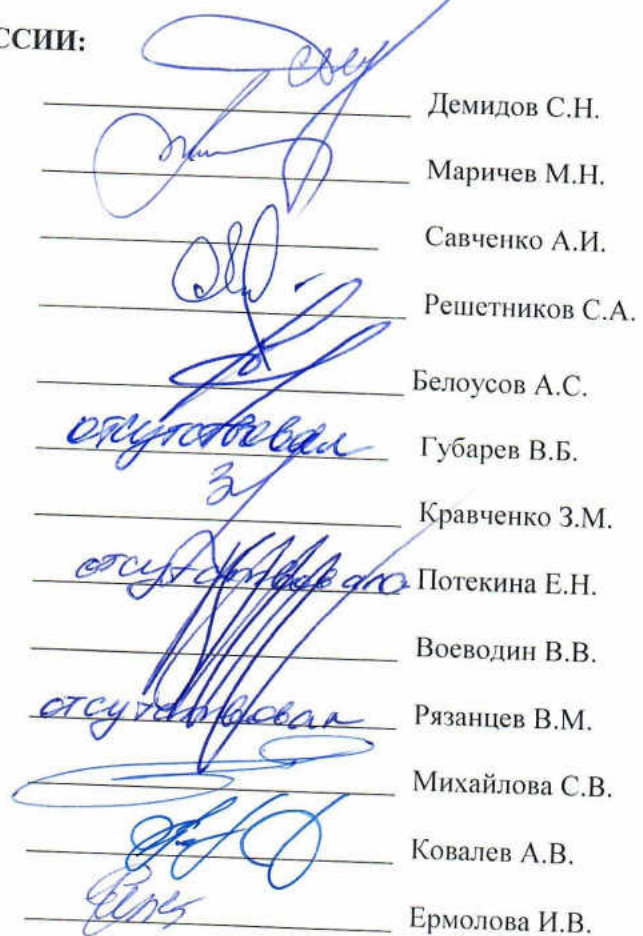 ССИИ:
Демидов С.Н.
Маричев М.Н.
Савченко А.И.
Решетников С.А.
Белоусов А.С.
отсутствовал Губарев В.Б.
Кравченко З.М.
отсутствовала Потекина Е.Н.
Воеводин В.В.
отсутствовал Рязанцев В.М.
Михайлова С.В.
Ковалев А.В.
Ермолова И.В.